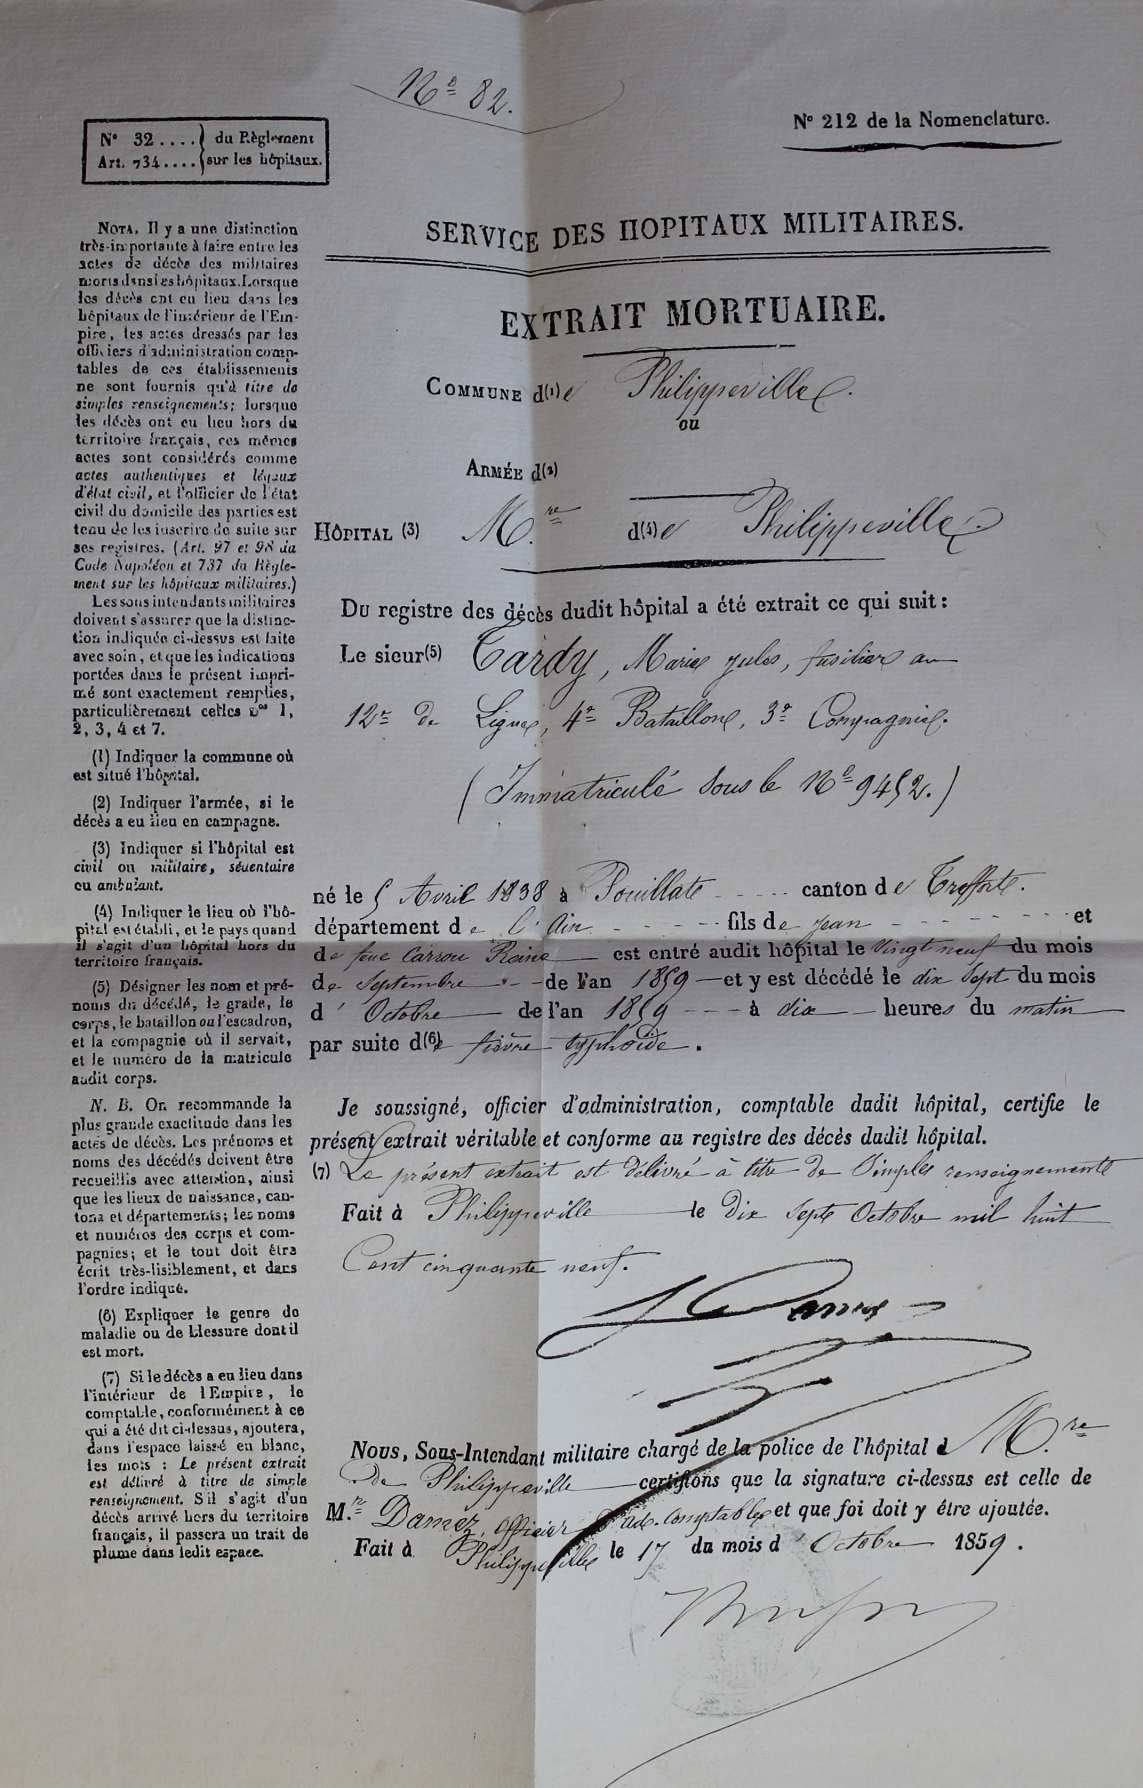 Nº 82.
Nº 32 .... du Règlement
Art. 734 .... sur les hôpitaux.
Nº 212 de la Nomenclature.
NOTA. Il y a une distinction
très-importante à faire entre les
actes de décès des militaires
morts dans les hôpitaux. Lorsque
les décès ont eu lieu dans les
hôpitaux de l'intérieur de l'Em-
pire, les actes dressés par les
officiers d'administration comp-
tables de ces établissements
ne sont fournis qu'à titre de
simples renseignements; lorsque
les décès ont eu lieu hors du
territoire français, ces mêmes
actes sont considérés comme
actes authentiques et légaux
d'état civil, et l'officier de l'état
civil du domicile des parties est
tenu de les inscrire de suite sur
ses registres. (Art. 97 et 98 du
Code Napoléon et 737 du Règle-
ment sur les hôpitaux militaires.)
Les sous intendants militaires
doivent s'assurer que la distinc-
tion indiquée ci-dessus est faite
avec soin, et que les indications
portées dans le présent impri-
mé sont exactement remplies,
particulièrement celles nos 1,
2, 3, 4 et 7.
(1) Indiquer la commune où
est situé l'hôpital.
(2) Indiquer l'armée, si le
décès a eu lieu en campagne.
(3) Indiquer si l'hôpital est
civil ou militaire, sédentaire
ou ambulant.
(4) Indiquer le lieu où l'hô-
pital est établi, et le pays quand
il s'agit d'un hôpital hors du
territoire français.
(5) Désigner les nom et pré-
noms du décédé, le grade, le
corps, le bataillon ou l'escadron,
et la compagnie où il servait,
et le numéro de la matricule
audit corps.
N. B. On recommande la
plus grande exactitude dans les
actes de décès. Les prénoms et
noms des décédés doivent être
recueillis avec attention, ainsi
que les lieux de naissance, can-
tons et départements; les noms
et numéros des corps et com-
pagnies; et le tout doit être
écrit très-lisiblement, et dans
l'ordre indiqué.
(6) Expliquer le genre de
maladie ou de blessure dont il
est mort.
(7) Si le décès a eu lieu dans
l'intérieur de l'Empire, le
comptable, conformément à ce
qui a été dit ci-dessus, ajoutera,
dans l'espace laissé en blanc,
les mots : Le présent extrait
est délivré à titre de simple
renseignement. S'il s'agit d'un
décès arrivé hors du territoire
français, il passera un trait de
plume dans ledit espace.
SERVICE DES HOPITAUX MILITAIRES.
EXTRAIT MORTUAIRE.
COMMUNE d(1)e Philippeville.
ou
ARMÉE d(2)
HÔPITAL (3) M.re d(4)e Philippeville
Du registre des décès dudit hôpital a été extrait ce qui suit :
Le sieur(5) Tardy, Marie Jules, fusilier au
12e de Ligne, 4e Bataillon, 3e Compagnie.
(Immatriculé sous le Nº 9452.)
né le 5 Avril 1838 à Pouillate canton de Treffort.
département de l'Ain fils de Jean et
de feue Carrou Reine est entré audit hôpital le vingt neuf du mois
de Septembre de l'an 1859 et y est décédé le dix sept du mois
d'Octobre de l'an 1859 à dix heures du matin
par suite d(6)e fièvre typhoïde.
Je soussigné, officier d'administration, comptable dudit hôpital, certifie le
présent extrait véritable et conforme au registre des décès dudit hôpital.
(7) Le présent extrait est délivré à titre de simples renseignements
Fait à Philippeville le dix sept Octobre mil huit
Cent cinquante neuf.
Damez
Nous, Sous-Intendant militaire chargé de la police de l'hôpital M.re
de Philippeville certifions que la signature ci-dessus est celle de
M.r Damez, officier d'ad. Comptable et que foi doit y être ajoutée.
Fait à Philippeville le 17 du mois d'Octobre 1859.